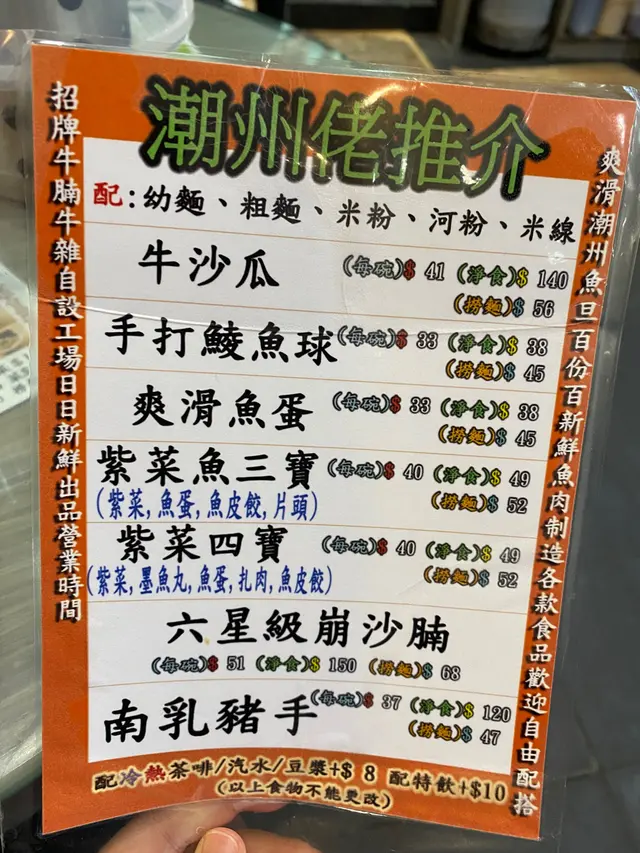 潮州佬推介
招牌牛腩牛雜自設工場日日新鮮出品營業時間
配:幼麵、粗麵、米粉、河粉、米線
牛沙瓜 (每碗)$ 41 (淨食)$ 140
(撈麵)$ 56
手打鯪魚球 (每碗)$ 33 (淨食)$ 38
(撈麵)$ 45
爽滑魚蛋 (每碗)$ 33 (淨食)$ 38
(撈麵)$ 45
紫菜魚三寶 (每碗)$ 40 (淨食)$ 49
(紫菜,魚蛋,魚皮餃,片頭) (撈麵)$ 52
紫菜四寶 (每碗)$ 40 (淨食)$ 49
(紫菜,墨魚丸,魚蛋,扎肉,魚皮餃) (撈麵)$ 52
六星級崩沙腩
(每碗)$ 51 (淨食)$ 150 (撈麵)$ 68
南乳豬手 (每碗)$ 37 (淨食)$ 120
(撈麵)$ 47
配冷熱茶啡/汽水/豆漿+$ 8 配特飲+$10
(以上食物不能更改)
爽滑潮州魚旦百份百新鮮魚肉制造各款食品歡迎自由配搭